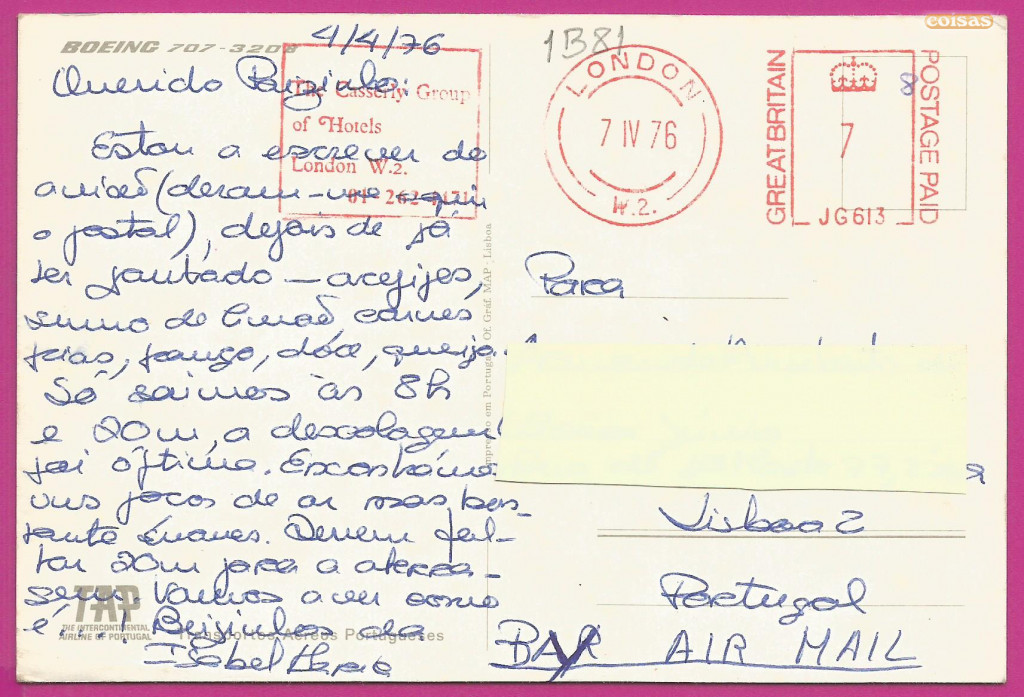 coisas
BOEING 707-320B
4/4/76
1B81
Querido Paizinho:
The Casserly Group
of Hotels
London W.2.
01-262
LONDON
7 IV 76
W.2.
GREAT BRITAIN
7
JG613
POSTAGE PAID
8
Estou a escrever do
avião (deram-me aqui
o postal), depois de já
ter jantado — acepipes,
sumo de limão, carnes
frias, frango, dôce, queijo.
Só saimos às 8h
e 20m, a descolagem
foi óptima. Encontrámos
uns poços de ar mas bas-
tante suaves. Devem fal-
tar 20m para a aterra-
gem. Vamos a ver como
é
Beijinhos da
Isabel
TAP
THE INTERCONTINENTAL
AIRLINE OF PORTUGAL
Transportes Aéreos Portugueses
Impresso em Portugal Of. Gráf. MAP - Lisboa
Para
Lisboa 2
Portugal
BY AIR MAIL